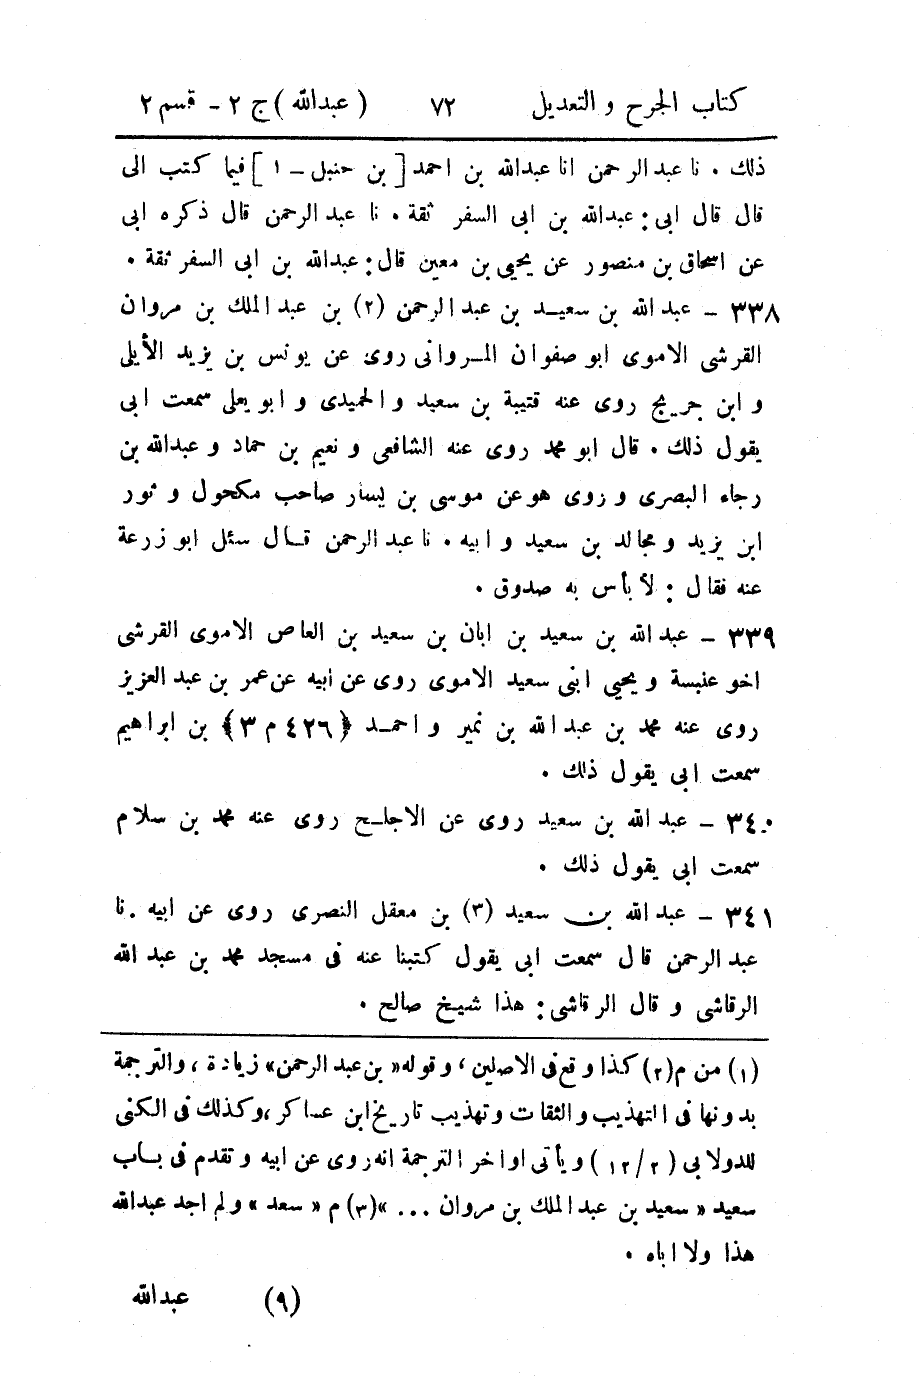 كتاب الجرح و التعديل ٧٢ ( عبدالله ) ج ٢ - قسم ٢
ذلك . نا عبد الرحمن انا عبدالله بن احمد [ بن حنبل - ١ ] فيما كتب الى
قال قال ابى : عبدالله بن ابى السفر ثقة . نا عبد الرحمن قال ذكره ابى
عن اسحاق بن منصور عن يحيى بن معين قال : عبدالله بن ابى السفر ثقة .
٣٣٨ - عبد الله بن سعيد بن عبد الرحمن (٢) بن عبد الملك بن مروان
القرشى الاموى ابو صفوان المروانى روى عن يونس بن يزيد الأيلى
و ابن جريج روى عنه قتيبة بن سعيد و الحميدى و ابو يعلى سمعت ابى
يقول ذلك . قال ابو محمد روى عنه الشافعى و نعيم بن حماد و عبدالله بن
رجاء البصرى و روى هو عن موسى بن يسار صاحب مكحول و ثور
ابن يزيد و مجالد بن سعيد و ابيه . نا عبد الرحمن قال سئل ابو زرعة
عنه فقال : لا بأس به صدوق .
٣٣٩ - عبد الله بن سعيد بن ابان بن سعيد بن العاص الاموى القرشى
اخو عنبسة و يحيى ابنى سعيد الاموى روى عن ابيه عن عمر بن عبد العزيز
روى عنه محمد بن عبد الله بن نمير و احمد ﴿ ٤٢٦ م ٣ ﴾ بن ابراهيم
سمعت ابى يقول ذلك .
٣٤٠ - عبد الله بن سعيد روى عن الاجلح روى عنه محمد بن سلام
سمعت ابى يقول ذلك .
٣٤١ - عبد الله بن سعيد (٣) بن معقل النصرى روى عن ابيه . نا
عبد الرحمن قال سمعت ابى يقول كتبنا عنه فى مسجد محمد بن عبد الله
الرقاشى و قال الرقاشى : هذا شيخ صالح .
(١) من م (٢) كذا وقع فى الاصلين ، وقوله « بن عبد الرحمن » زيادة ، والترجمة
بدونها فى التهذيب والثقات وتهذيب تاريخ ابن عساكر ، وكذلك فى الكنى
للدولابى ( ٢ / ١٢ ) ويأتى اواخر الترجمة انه روى عن ابيه وتقدم فى باب
سعيد « سعيد بن عبد الملك بن مروان ... » (٣) م « سعد » ولم اجد عبدالله
هذا ولا اباه .
(٩) عبدالله